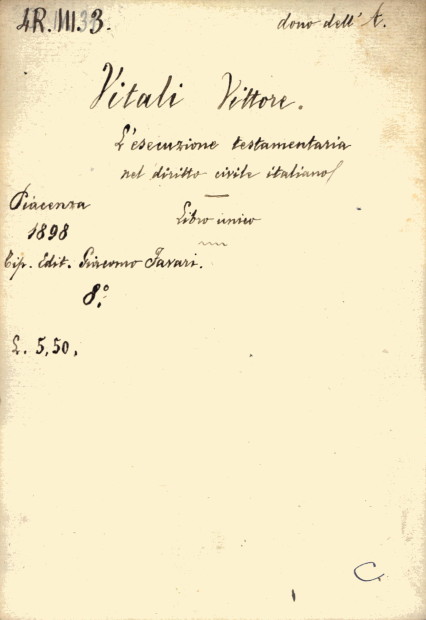 4R.III.33.
dono dell' A.
Vitali Vittore.
L'esecuzione testamentaria
nel diritto civile italiano
Libro unico
Piacenza
1898
Tip. Edit. Giacomo Favari.
8.°
L. 5,50,
C.